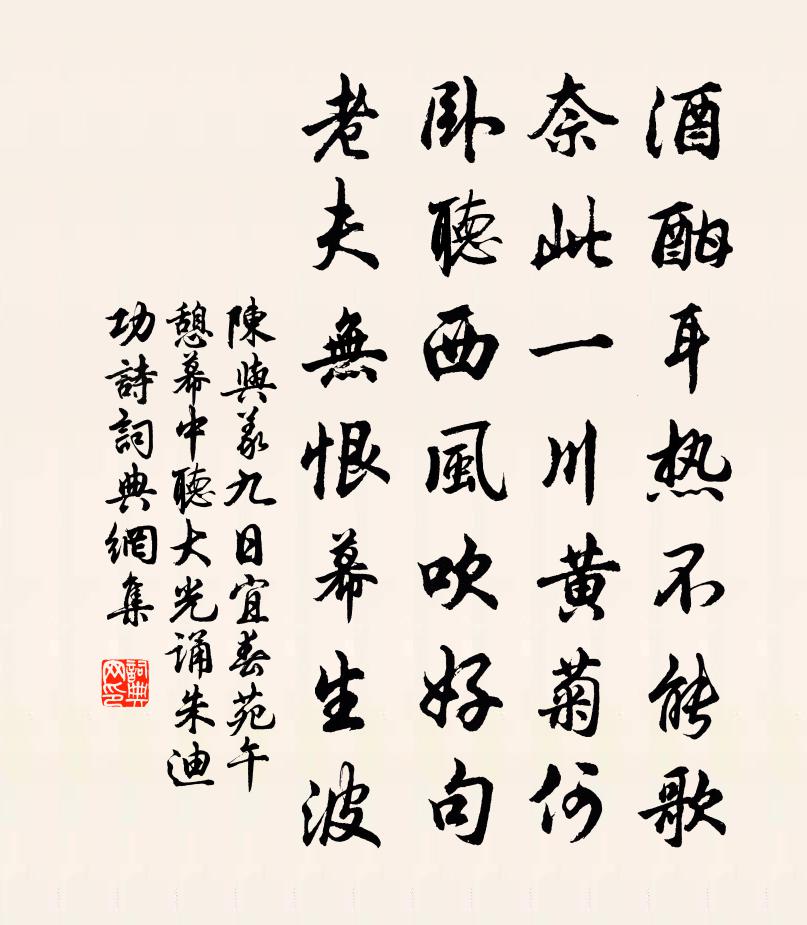 酒酣耳热不能歌
奈此一川黄菊何
卧聽西風吹好句
老夫無恨幕生波
陳與義九日宜春苑午
憩幕中聽大光誦朱迪
功詩詞典網集
詞典网印